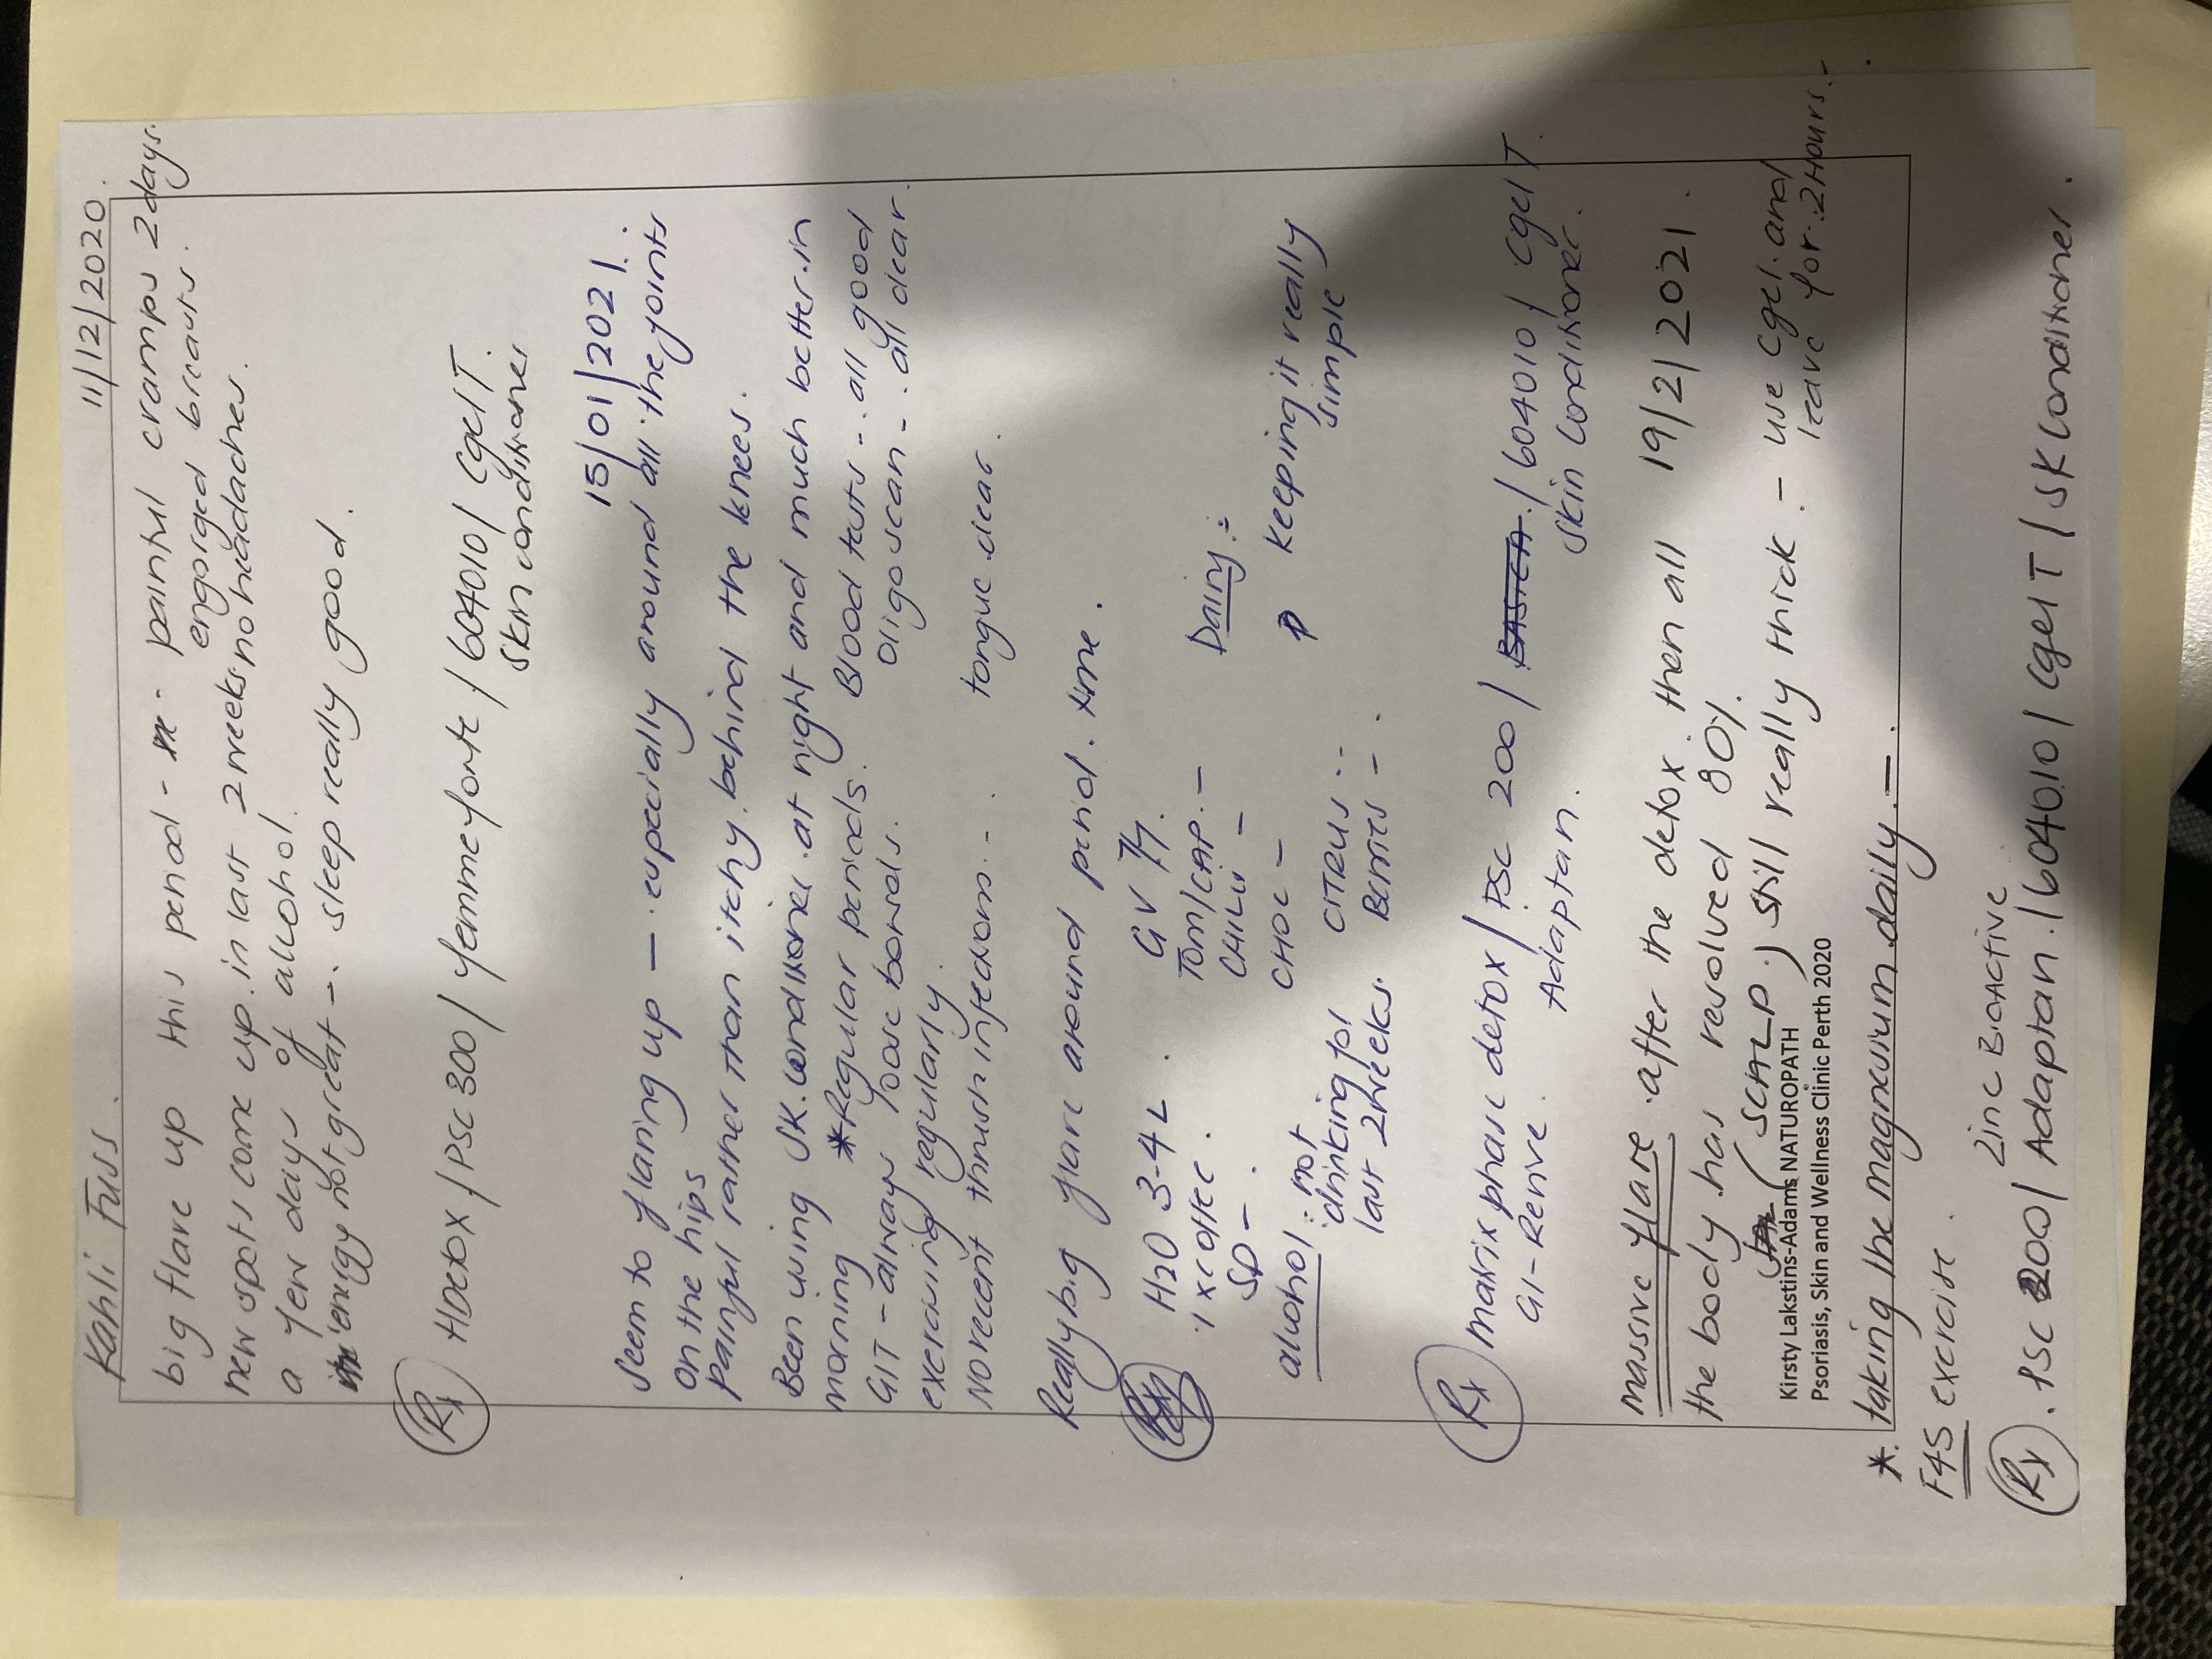 Kahli Fuss 11/12/2020.
big flare up this period - painful cramps 2 days.
engorged breasts.
new spots come up in last 2 weeks no headaches.
a few days of alcohol
energy not great - sleep really good.
Rx HDetox / PSC 300 / femme forte / 604010 / Cgel T.
Skin conditioner
15/01/2021.
Seem to flaring up - especially around all the joints
on the hips
Painful rather than itchy behind the knees.
Been using SK. conditioner at night and much better in
morning *Regular periods. Blood tests - all good
GIT - always loose bowels. Oligo scan - all clear.
exercising regularly.
No recent thrush infections - tongue clear.
Really big flare around period time.
H2O 3-4L. GV 77.
1 x coffee. TOM/CAP. - Dairy:
SD - CHILLI -
CHOC - keeping it really
simple
alcohol: not CITRUS -
drinking for BERRIES -
last 2 weeks.
Rx matrix phase detox / PSC 200 / BASICA / 604010 / Cgel T.
GI-Revive. Adaptan. Skin Conditioner.
massive flare after the detox then all 19/2/2021.
the body has resolved 80%.
(SCALP.) still really thick. - use Cgel and
leave for 2 Hours.
Kirsty Lakstins-Adams NATUROPATH
Psoriasis, Skin and Wellness Clinic Perth 2020
* taking the magnesium daily. -
F45 exercise.
Zinc Bioactive
Rx. PSC 200 / Adaptan. / 604010 / Cgel T / SK Conditioner.